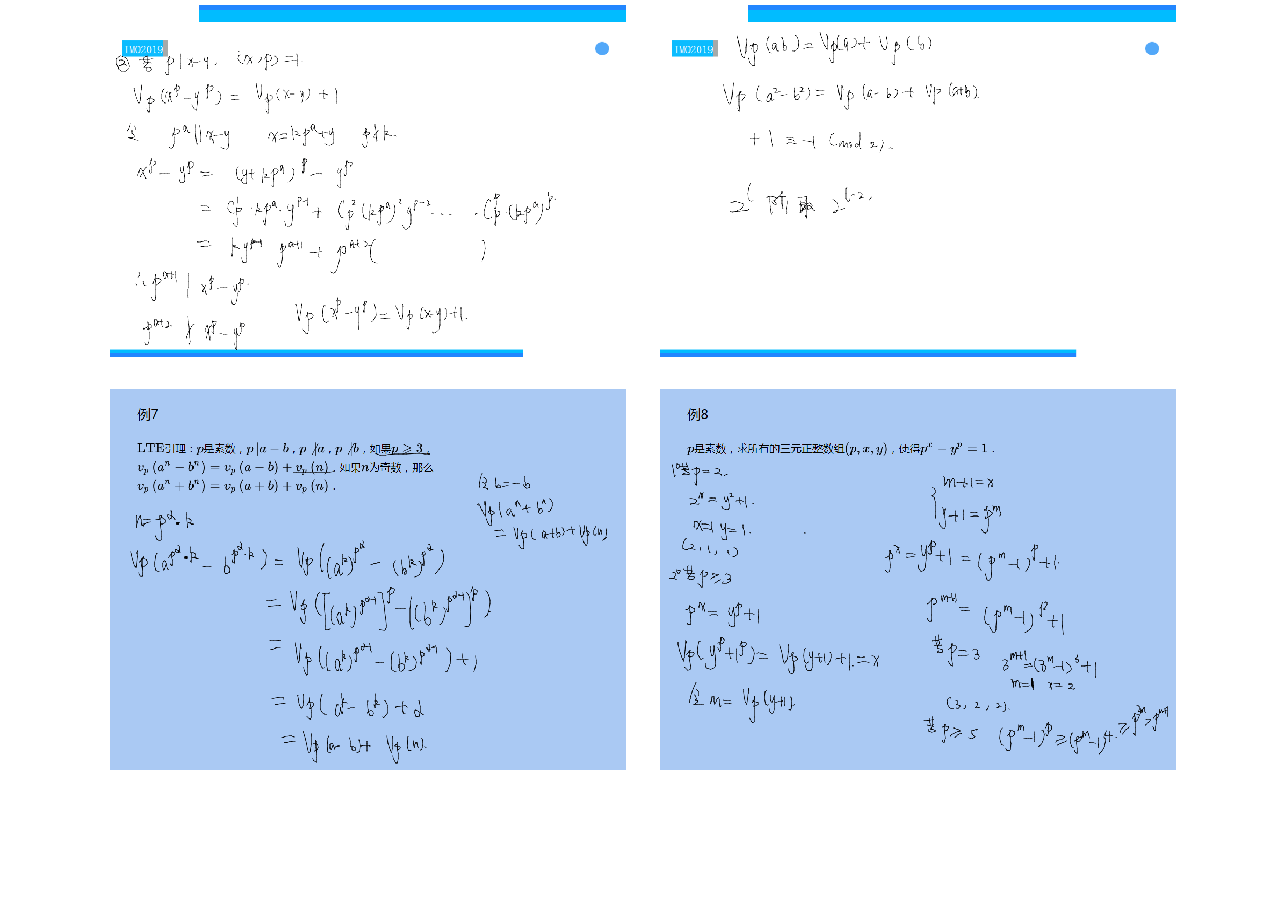 IMO2019
② 若 p|x-y, (x,p)=1.
Vp(x^p-y^p) = Vp(x-y)+1
设 p^α||x-y x=kp^α+y p∤k.
x^p-y^p = (y+kp^α)^p-y^p
= C_p^1·kp^α·y^{p-1}+C_p^2(kp^α)^2y^{p-2}… …C_p^p·(kp^α)^p.
= ky^{p-1} p^{α+1}+p^{α+2}( )
∴ p^{α+1} | x^p-y^p.
p^{α+2} ∤ x^p-y^p Vp(x^p-y^p)=Vp(x-y)+1.
IMO2019
Vp(ab)=Vp(a)+Vp(b)
Vp(a²-b²)=Vp(a-b)+Vp(a+b).
+1≡-1(mod 2).
例7
LTE引理:p是素数,p|a-b,p∤a,p∤b,如果p⩾3,
v_p(a^n-b^n)=v_p(a-b)+v_p(n).如果n为奇数,那么
v_p(a^n+b^n)=v_p(a+b)+v_p(n).
设b=-b
Vp(a^n+b^n)
=Vp(a+b)+Vp(n).
n=p^α·k
Vp(a^{p^α·k}-b^{p^α·k})=Vp((a^k)^{p^α}-(b^k)^{p^α})
=Vp([(a^k)^{p^{α-1}}]^p-[(b^k)^{p^{α-1}}]^p)
=Vp((a^k)^{p^{α-1}}-(b^k)^{p^{α-1}})+1
=Vp(a^k-b^k)+α
=Vp(a-b)+Vp(n).
例8
p是素数,求所有的三元正整数组(p,x,y),使得p^x-y^p=1.
1°若p=2.
2^x=y²+1.
x=1 y=1.
(2,1,1)
2°若p≥3
p^x=y^p+1
Vp(y^p+1^p)=Vp(y+1)+1.=x
设m=Vp(y+1).
m+1=x
y+1=p^m
p^x=y^p+1=(p^m-1)^p+1.
p^{m+1}=(p^m-1)^p+1
若p=3 3^{m+1}=(3^m-1)^3+1
m=1 x=2
(3,2,2).
若p≥5 (p^m-1)^p≥(p^m-1)^4≥p^{2m}≥p^{m+1}